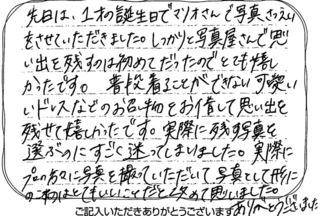 先日は、1才の誕生日でマリオさんで写真さつえい
をさせていただきました。しっかりと写真屋さんで思
い出を残すのは初めてだったのでとても嬉し
かったです。普段着ることができない可愛い
いドレスなどのお召物をお借して思い出を
残せて嬉しかったです。実際に残す写真を
選ぶのにすごく迷ってしまいました。実際に
プロの方々に写真を撮っていただいて写真として形に
のこるのはとてもいいことだと改めて思いました。
ご記入いただきありがとうございます ありがとうございました